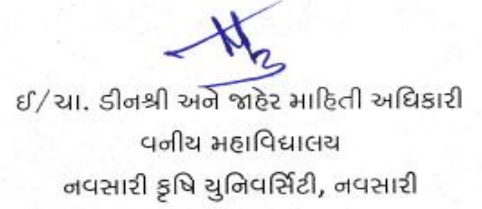 ઈ/ચા. ડીનશ્રી અને જાહેર માહિતી અધિકારી
વનીય મહાવિદ્યાલય
નવસારી કૃષિ યુનિવર્સિટી, નવસારી